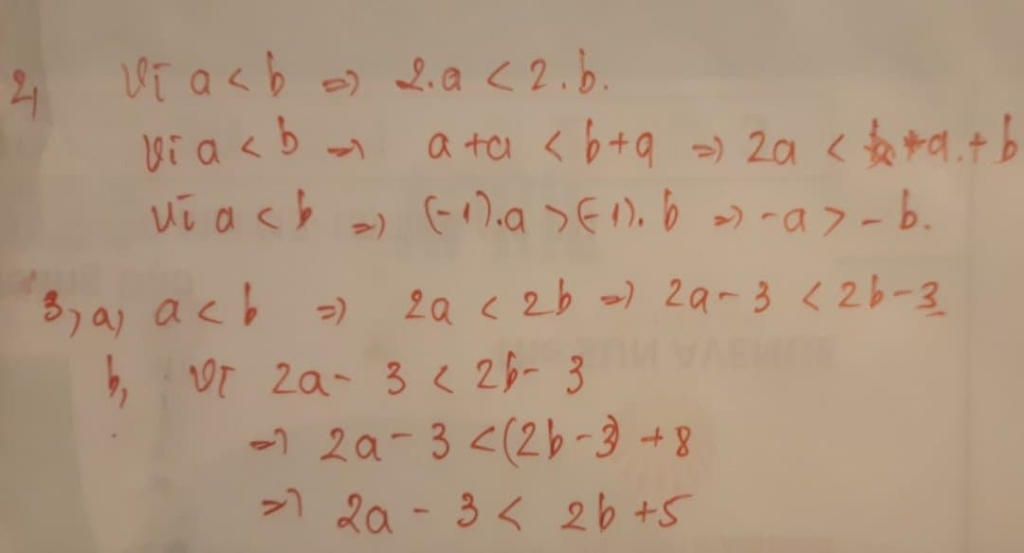 2, Vì a < b => 2.a < 2.b.
Vì a < b => a + a < b + a => 2a < a + b
Vì a < b => (-1).a > (-1).b => -a > -b.
3, a, a < b => 2a < 2b => 2a - 3 < 2b - 3
b, Vì 2a - 3 < 2b - 3
=> 2a - 3 < (2b - 3) + 8
=> 2a - 3 < 2b + 5